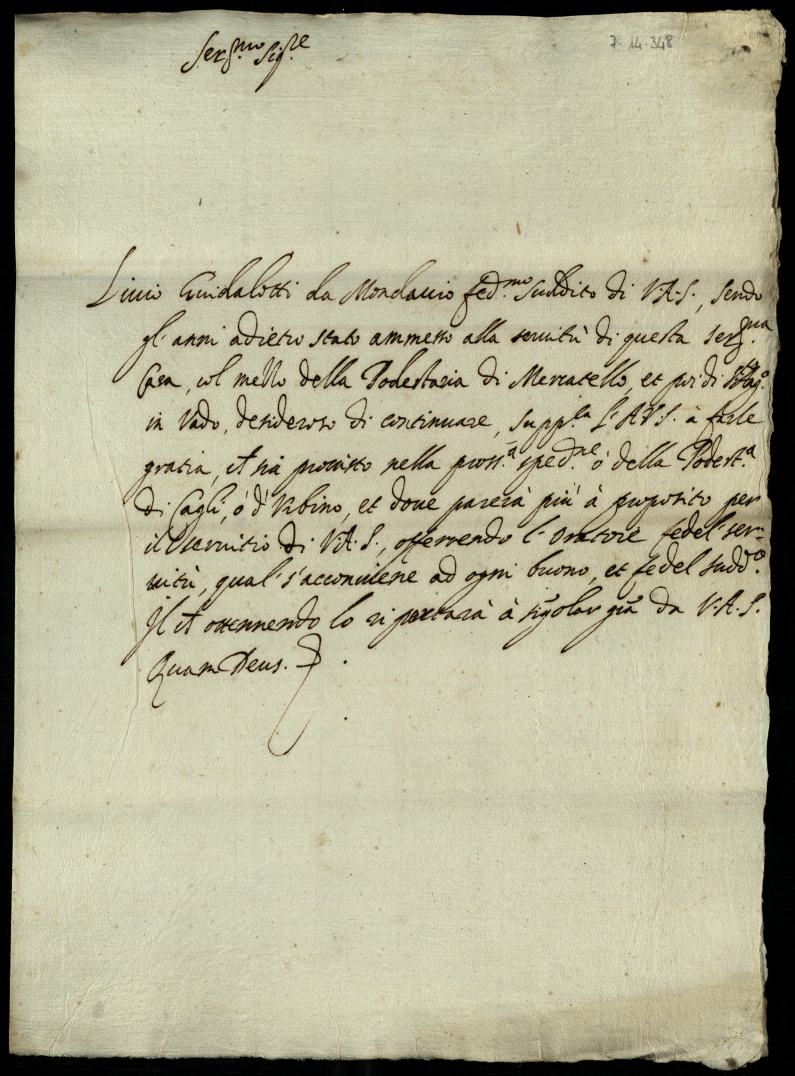 Ser.mo Sig.re
7-14-348
Livio Guidalotti da Mondavio fed.mo suddito di V.A.S., sendo
gl'anni adietro stato ammesso alla servitù di questa Ser.ma
Casa, col mezzo della Podestaria di Mercatello, et poi di
in Vado, desideroso di continuare, supp.la l'A.V.S. à farle
gratia, ch sia provisto nella pross.a sped.ne ò della Podest.a
di Cagli, ò d'Urbino, et dove parerà più à proposito per
il servitio di V.A.S., offerendo l'oratore fedel ser=
vitù, qual s'acconviene ad ogni buono, et fedel sudd.o.
Il ch ottennendo lo riportarà à sigolar gia da V.A.S.
Quam Deus.